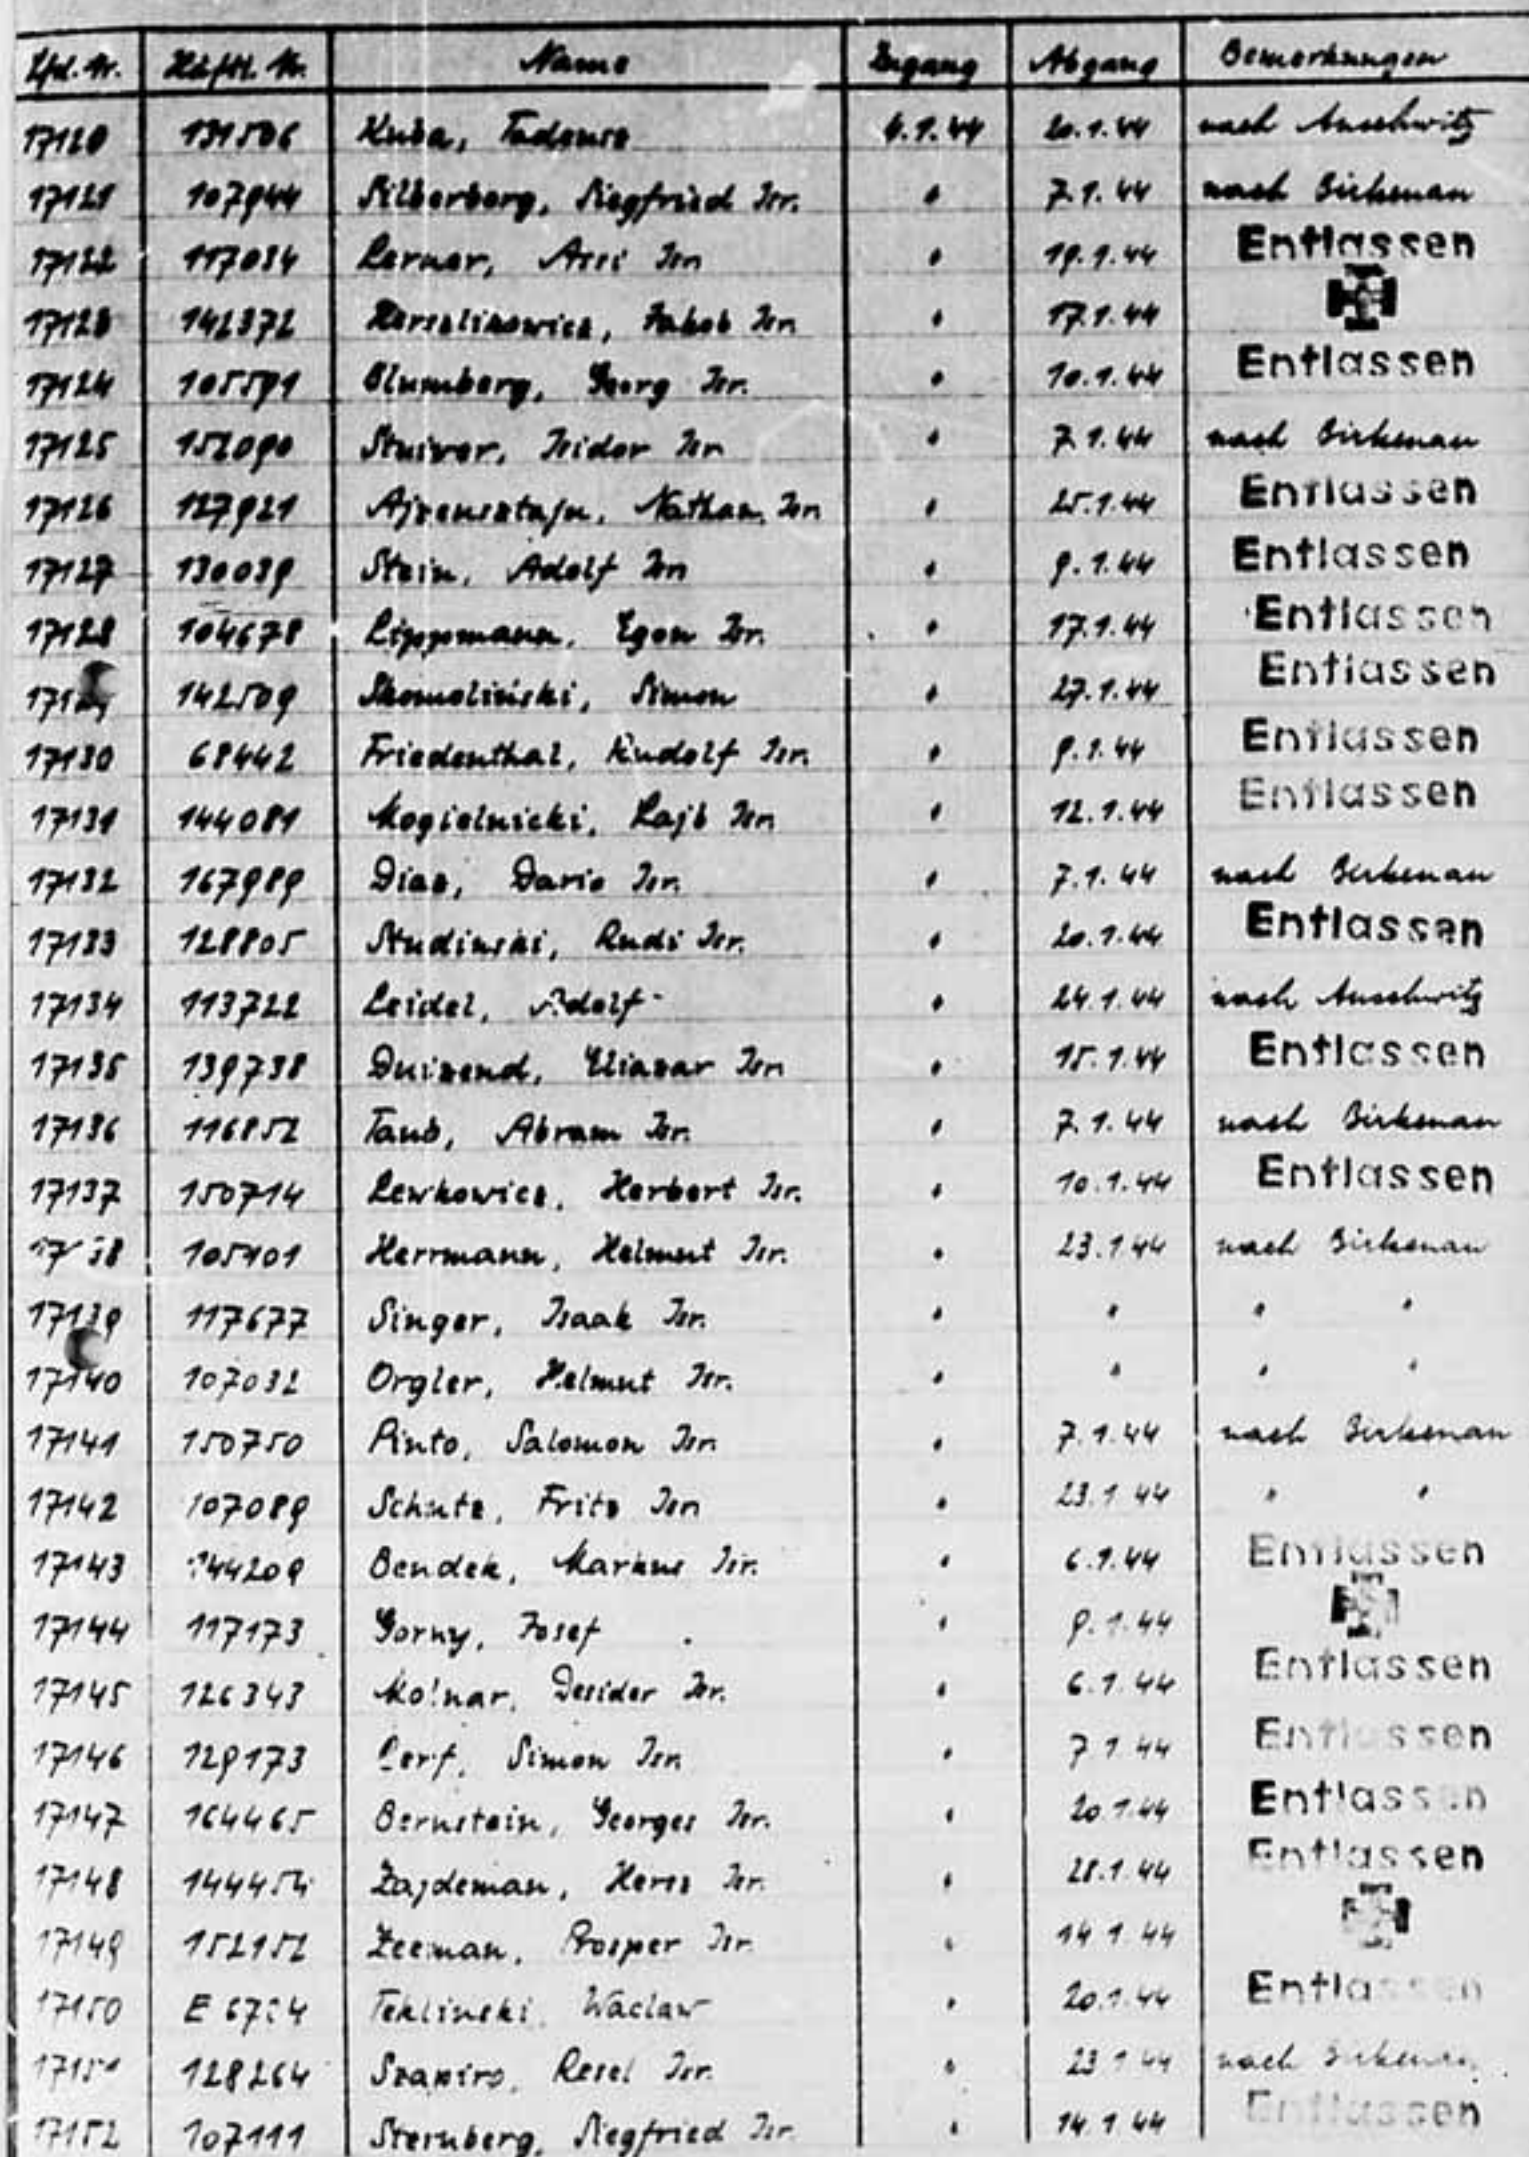 Lfd. Nr. Häftl. Nr. Name Zugang Abgang Bemerkungen
17120 131506 Kuba, Tadeusz 6.1.44 20.1.44 nach Auschwitz
17121 107944 Silberberg, Siegfried Isr. " 7.1.44 nach Birkenau
17122 117034 Lerner, Isr. " 19.1.44 Entlassen
17123 142372 Herszlikowicz, Jakob Isr. " 17.1.44
17124 105591 Blumberg, Georg Isr. " 10.1.44 Entlassen
17125 152090 Stuiver, Isidor Isr. " 7.1.44 nach Birkenau
17126 127921 Ajzensztajn, Nathan Isr. " 25.1.44 Entlassen
17127 130039 Stein, Adolf Isr. " 9.1.44 Entlassen
17128 104678 Lippmann, Egon Isr. " 17.1.44 Entlassen
142509 Skomoliński, Simon " 27.1.44 Entlassen
17130 68442 Friedenthal, Rudolf Isr. " 9.1.44 Entlassen
17131 144081 Mogielnicki, Lajb Isr. " 12.1.44 Entlassen
17132 167989 Diaz, Dario Isr. " 7.1.44 nach Birkenau
17133 128805 Studinski, Rudi Isr. " 20.1.44 Entlassen
17134 113722 Leidel, " 24.1.44 nach Auschwitz
17135 139738 Duizend, Eliazar Isr. " 15.1.44 Entlassen
17136 116852 Taub, Abram Isr. " 7.1.44 nach Birkenau
17137 150714 Lewkowicz, Herbert Isr. " 10.1.44 Entlassen
105101 Herrmann, Helmut Isr. " 23.1.44 nach Birkenau
17139 117677 Singer, Isaak Isr. " " " "
17140 107032 Orgler, Helmut Isr. " " " "
17141 150750 Pinto, Salomon Isr. " 7.1.44 nach Birkenau
17142 107089 Schutz, Fritz Isr. " 23.1.44 " "
17143 Bendek, Markus Isr. " 6.1.44 Entlassen
17144 117173 Gorny, Josef " 9.1.44
17145 126343 Molnar, Desider Isr. " 6.1.44 Entlassen
17146 129173 Simon Isr. " 7.1.44 Entlassen
17147 164465 Bernstein, Georges Isr. " 20.1.44 Entlassen
17148 144454 Zajdeman, Hersz Isr. " 28.1.44 Entlassen
17149 152152 Zeeman, Prosper Isr. " 14.1.44
17150 Teklinski, Waclaw " 20.1.44 Entlassen
17151 128264 Szapiro, Resel Isr. " 23.1.44 nach Birkenau
17152 107111 Sternberg, Siegfried Isr. " 14.1.44 Entlassen